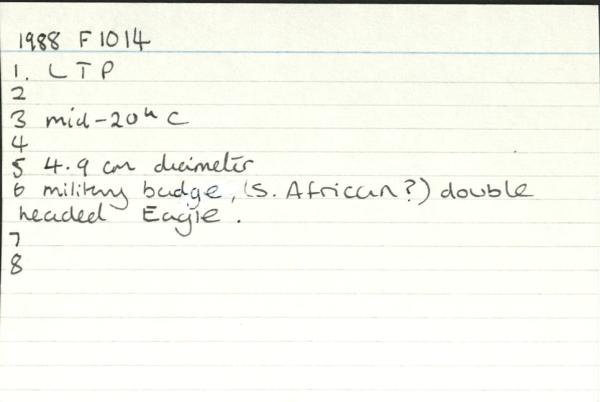 1988 F1014
1. LTP
2
3 mid-20th C
4
5 4.9 cm diameter
6 military badge, (S. African?) double
headed Eagle.
7
8